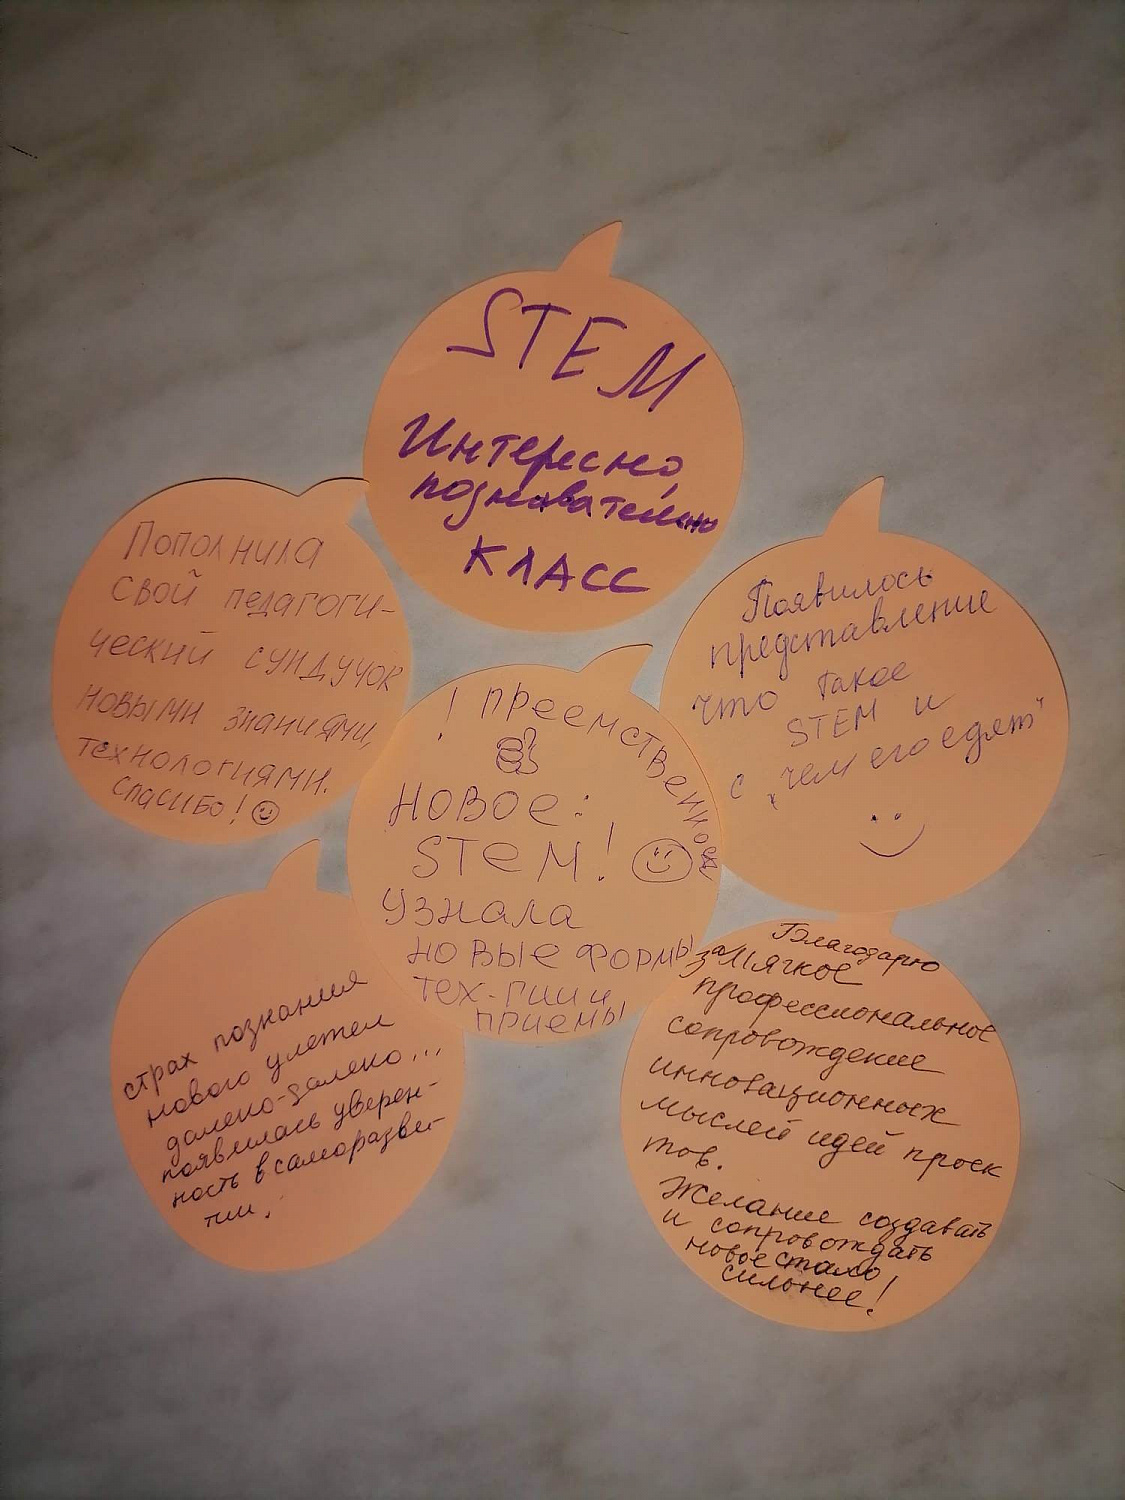 STEM
Интересно,
познавательно
КЛАСС
Пополнила
свой педагоги-
ческий сундучок
новыми знаниями,
технологиями.
Спасибо!
Появилось
представление
что такое
STEM и
с „чем его едят"
! преемственность
новое:
STEM!
Узнала
новые формы
тех-гии и
приемы
страх познания
нового улетел
далеко-далеко...
появилась уверен-
ность в саморазви-
тии.
Благодарю
за мягкое
профессиональное
сопровождение
инновационных
мыслей идей проек
тов.
Желание создавать
и сопровождать
новое стало
сильнее!